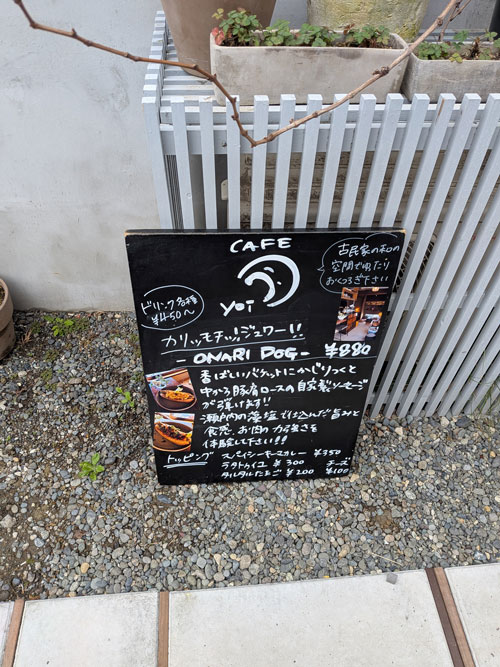 CAFE
yoi
古民家の和の
空間でゆったり
おくつろぎ下さい
ドリンク各種
¥450〜
カリッモチッ!ジュワー!!
- ONARI DOG - ¥880
香ばしいバケットにかじりつくと
中から豚肩ロースの自家製ソーセージ
が弾けます!!
瀬戸内の藻塩で仕込んだ旨みと
食感、お肉の力強さを
体験して下さい!!!
トッピング スパイシーキーマカレー ¥350
ラタトゥイユ ¥300 チーズ
タルタルたまご ¥200 ¥100